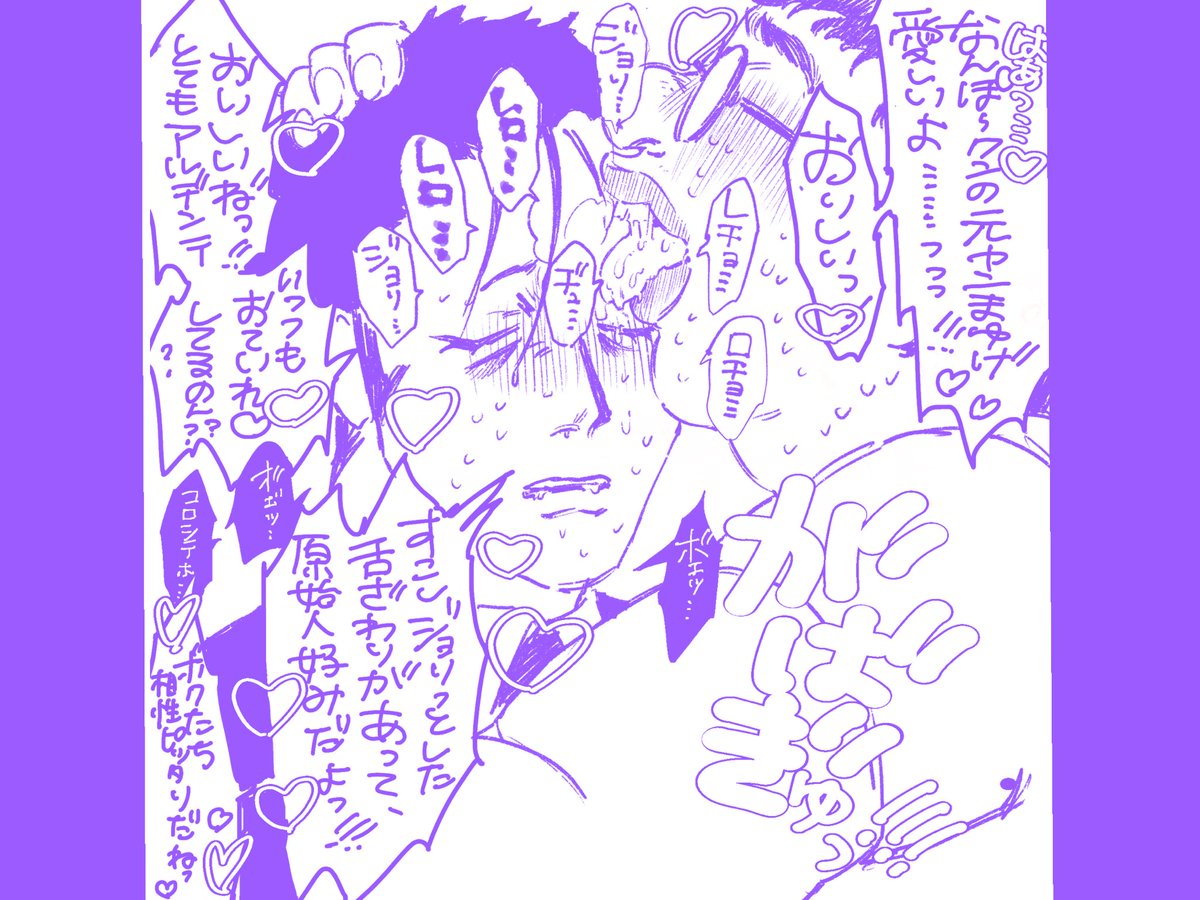 はあっ…♡
なんぼ〜クンの元ヤンまゆげ
愛しいよ……っっっ!!!♡♡
おいしいっ
ジョリ…
レロ…
レロ…
ジョリ…
ヂュ…
レチョ…
ロチョ…
おいしいねっ!!!
とてもアルデンテ
いつも
おていれ♡
してるのん??
?
ボエッ…
コロシテホ…
ボエッ…
すこしジョリっとした
舌ざわりがあって、
原始人好みだよっ!!!
ボクたち
相性ピッタリだねっ♡
がばい
しきゅっ…!!!